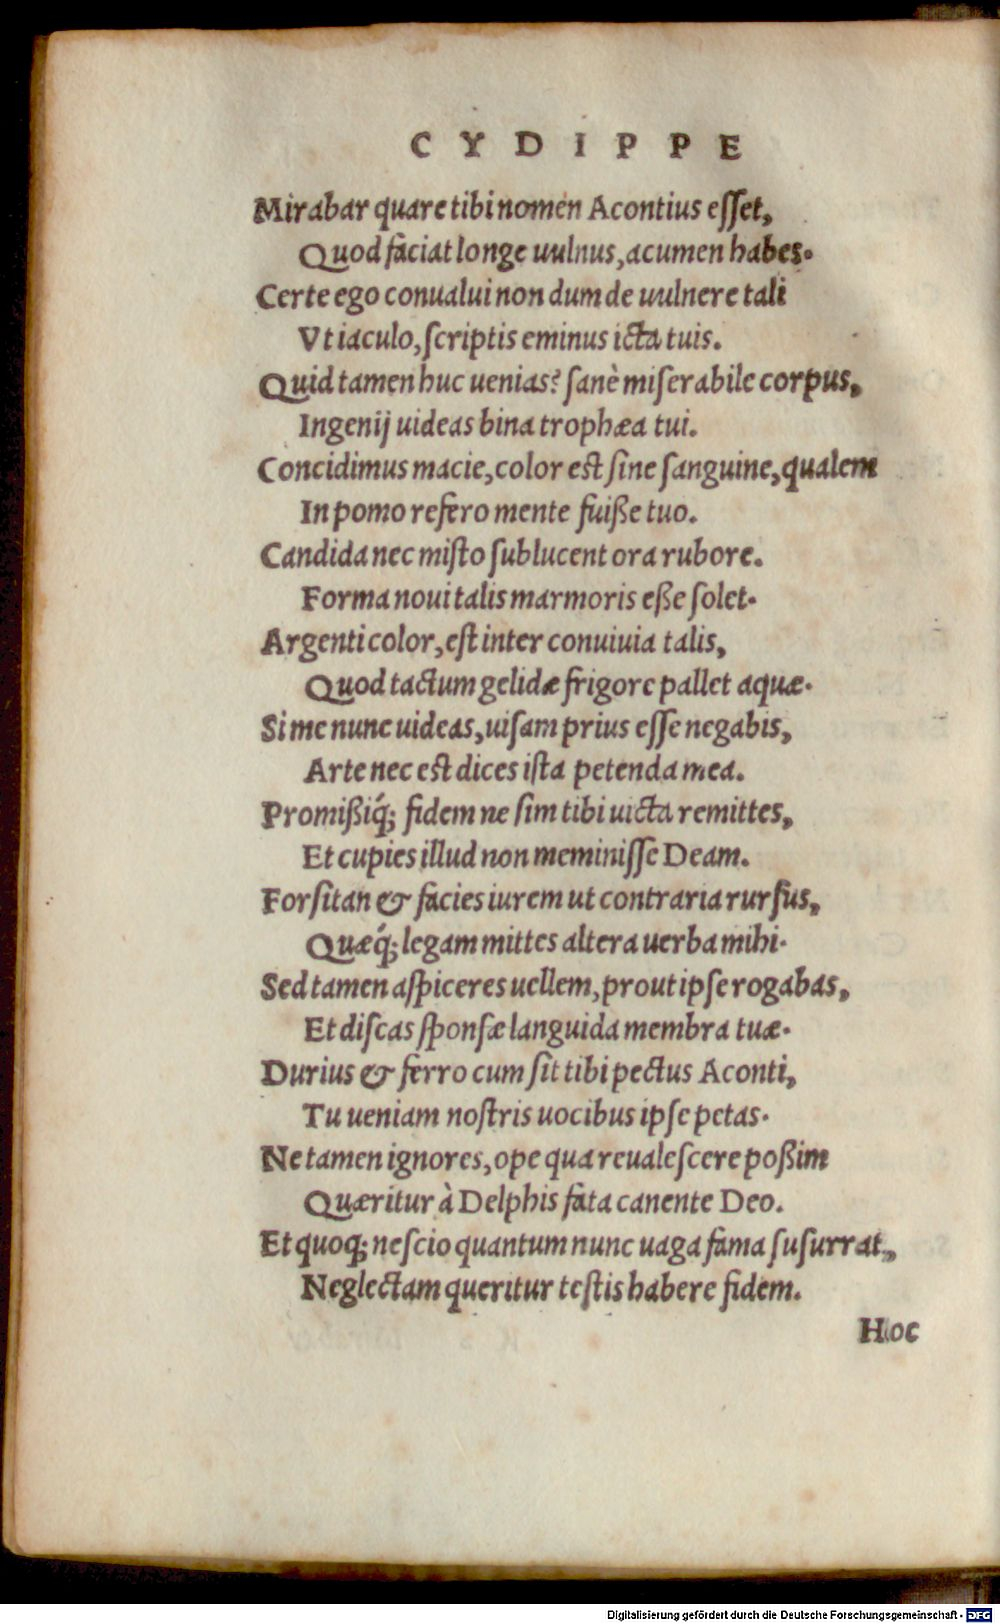 CYDIPPE
Mirabar quare tibi nomen Acontius eſſet,
Quod faciat longe uulnus, acumen habes.
Certe ego conualui non dum de uulnere tali
Vt iaculo, ſcriptis eminus icta tuis.
Quid tamen huc uenias? ſanè miſerabile corpus,
Ingenij uideas bina trophæa tui.
Concidimus macie, color eſt ſine ſanguine, qualem
In pomo refero mente fuiße tuo.
Candida nec miſto ſublucent ora rubore.
Forma noui talis marmoris eße ſolet.
Argenti color, eſt inter conuiuia talis,
Quod tactum gelidæ frigore pallet aquæ.
Si me nunc uideas, uiſam prius eſſe negabis,
Arte nec eſt dices iſta petenda mea.
Promißiq́; fidem ne ſim tibi uicta remittes,
Et cupies illud non meminiſſe Deam.
Forſitan & facies iurem ut contraria rurſus,
Quæq́; legam mittes altera uerba mihi.
Sed tamen aſpiceres uellem, prout ipſe rogabas,
Et diſcas ſponſæ languida membra tuæ.
Durius & ferro cum ſit tibi pectus Aconti,
Tu ueniam noſtris uocibus ipſe petas.
Ne tamen ignores, ope qua reualeſcere poßim
Quæritur à Delphis fata canente Deo.
Et quoq; neſcio quantum nunc uaga fama ſuſurrat,
Neglectam queritur teſtis habere fidem.
Hoc
Digitalisierung gefördert durch die Deutsche Forschungsgemeinschaft - DFG